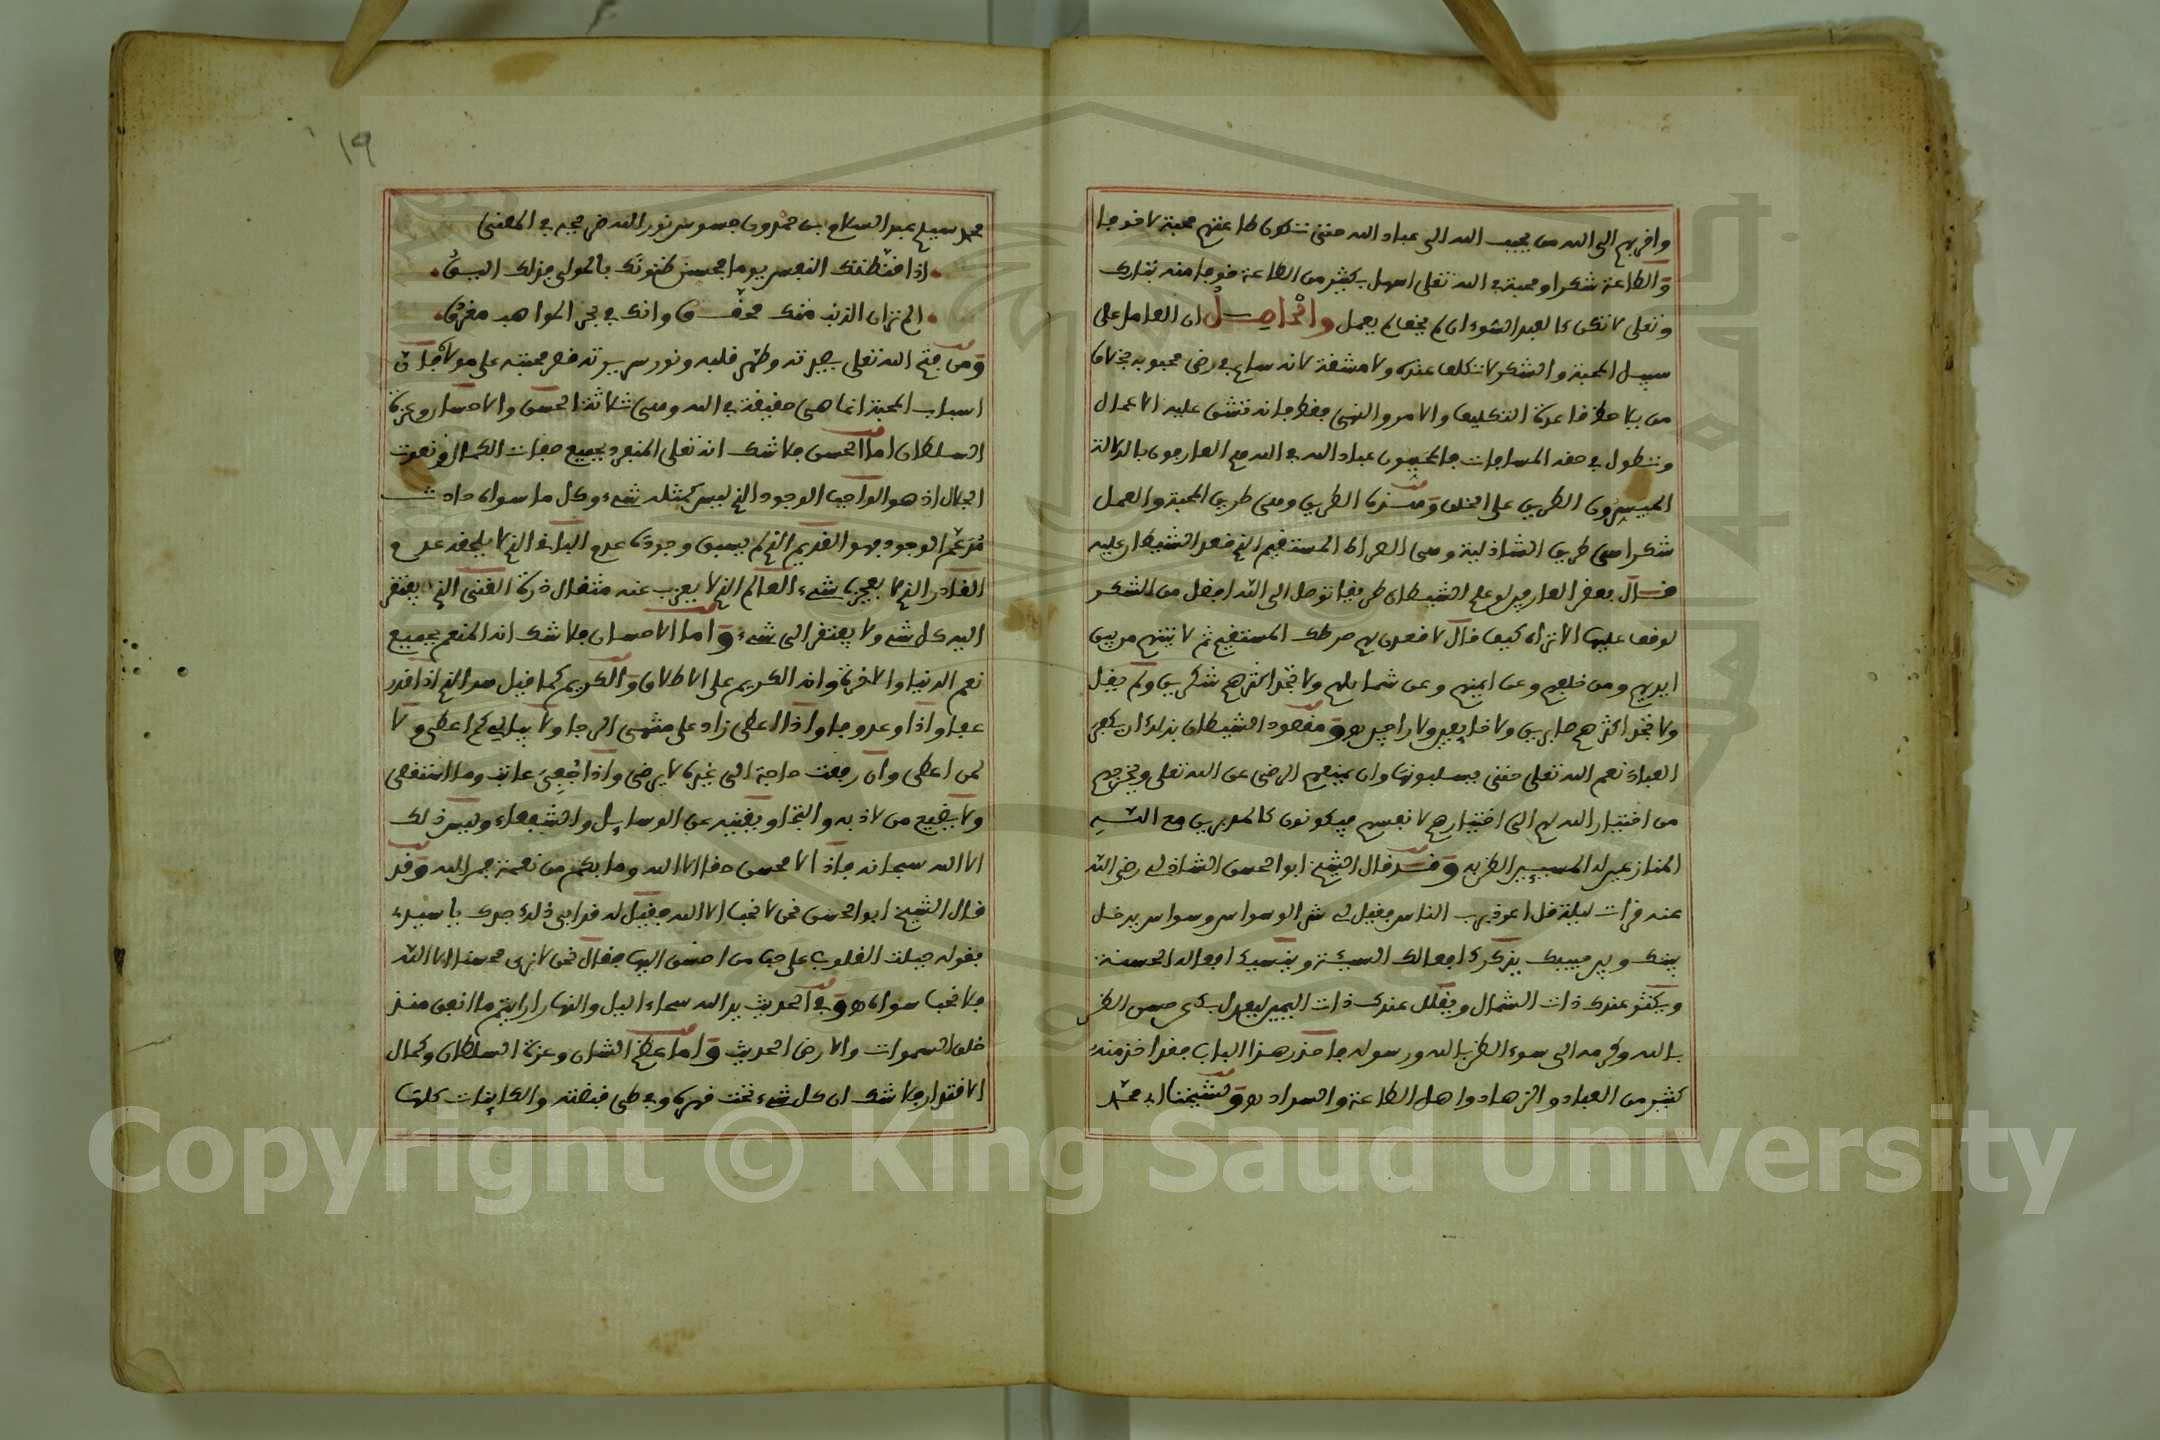 واقربهم الى الله من يحبب الله الى عباد الله حتى تكون طاعتهم محبة لا خوفا
والطاعة شكرا ومحبة في الله تعلى اسهل بكثير من الطاعة خوفا منه تبارك
وتعلى لا تكن كالعبد السوء ان لم يخف لم يعمل والحاصل ان العامل على
سبيل المحبة والشكر لا تكلف عنده ولا مشقة لانه ساع في رضى محبوبه بخلاف
من يلاحظ قاعدة التكليف والامر والنهي فقط فانه تشق عليه الاعمال
وتطول في حقه المسافات فالمحببون عباد الله في الله هم العارفون بالدلالة
الميسرون الطريق على الخلق وهذه الطريق وهي طريق المحبة والعمل
شكرا هي طريق الشاذلية وهي الصراط المستقيم الذي قعد الشيطان عليه
قال بعض العارفين لو علم الشيطان طريقا توصل الى الله افضل من الشكر
لوقف عليها الا تراه كيف قال لاقعدن لهم صرطك المستقيم ثم لاتينهم من بين
ايديهم ومن خلفهم وعن ايمنهم وعن شمايلهم ولا تجد اكثرهم شكرين ولم يقل
ولا تجد اكثرهم صابرين ولا خايفين ولا راجين ومقصود الشيطان بذلك ان يكفر
العباد نعم الله تعلى حتى يسلبوها وان يمنعهم الرضى عن الله تعلى ويخرجهم
من اختيار الله لهم الى اختيارهم لانفسهم فيكونون كالمدبرين مع الله
المنازعين له المسيين الظن به وقد قال الشيخ ابو الحسن الشاذلي رضي الله
عنه قرات ليلة قل اعوذ برب الناس فقيل لي شر الوسواس وسواس يدخل
بينك وبين حبيبك يذكرك افعالك السيئة وينسيك افعاله الحسنة
ويكثر عندك ذات الشمال ويقلل عندك ذات اليمين ليعدل بك عن حسن الظن
بالله وكرمه الى سوء الظن بالله ورسوله فاحذر هذا الباب فقد اخذ منه
كثير من العباد والزهاد واهل الطاعة والسداد ولشيخنا ابي محمد
محمد سيدي عبد السلام بن حمدون جسوس نور الله ضريحه في المعنى
اذا قنطتك النفس يوما فحسن ظنونك بالمولى فزلك
الم تر ان الذنب منك محقق وانك في بحر المواهب مغرق
ومن فتح الله تعلى بصيرته وطهر قلبه ونور سريرته قصر محبته على مولاه فان
اسباب المحبة انما هي حقيقة في الله وهي ثلاثة الحسن والاحسان وعزة
السلطان اما الحسن فلا شك انه تعلى المنفرد بجميع صفات الكمال ونعوت
الجمال اذ هو الواجب الوجود الذي ليس كمثله شيء وكل ما سواه حادث
الوجود فهو القديم الذي لم يسبق وجوده عدم الباقي الذي لا يلحقه عدم
القادر الذي لا يعجزه شيء العالم الذي لا يعزب عنه مثقال ذرة الغني الذي يفتقر
اليه كل شيء ولا يفتقر الى شيء واما الاحسان فلا شك انه المنعم بجميع
نعم الدنيا والاخرة وانه الكريم على الاطلاق والكريم كما قيل هو الذي اذا قدر
عفا واذا وعد وفا واذا اعطى زاد على منتهى الرجا ولا يبالي كم اعطى ولا
لمن اعطى وان رفعت حاجة الى غيره لا يرضى واذا جفي عاتب وما استقصى
ولا يضيع من لاذ به والتجا ويغنيه عن الوسايل والشفعاء وليس ذلك
الا الله سبحانه فاذا لا محسن حقا الا الله وما بكم من نعمة فمن الله وقد
قال الشيخ ابو الحسن نحن لا نحب الا الله فقيل له قد ابى ذلك جدك يا سيدي
بقوله جبلت القلوب على حب من احسن اليها فقال نحن لا نرى محسنا الا الله
فلا نحب سواه وفي الحديث يد الله سحاء اليل والنهار ارايتم ما انفق منذ
خلق السموات والارض الحديث واما عظم الشان وعزة السلطان وكمال
الاقتدار فلا شك ان كل شيء تحت قهره وفي طي قبضته والكاينات كلها
١٩
Copyright © King Saud University